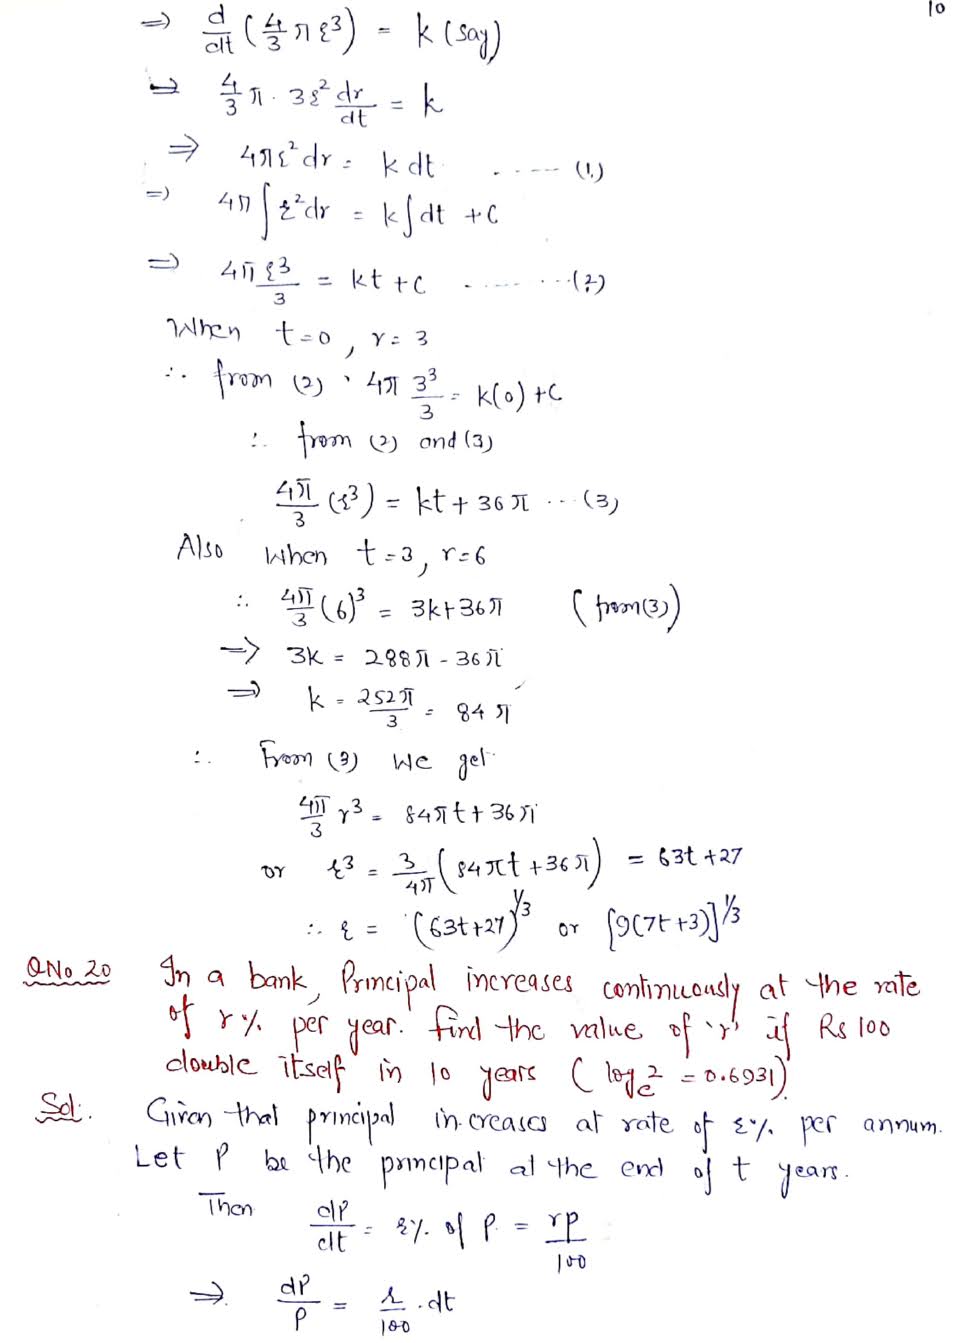 10
⇒ d/dt (4/3 π r³) = k (say)
⇒ 4/3 π · 3r² dr/dt = k
⇒ 4πr² dr = k dt ...... (1)
⇒ 4π ∫ r² dr = k ∫ dt + C
⇒ 4π r³/3 = kt + C ........ (2)
When t=0, r=3
∴ from (2), 4π 3³/3 = k(0) + C
∴ from (2) and (3)
4π/3 (r³) = kt + 36π ... (3)
Also When t=3, r=6
∴ 4π/3 (6)³ = 3k+36π (from (3))
⇒ 3k = 288π - 36π
⇒ k = 252π/3 = 84π
∴ From (3) We get
4π/3 r³ = 84πt + 36π
or r³ = 3/4π (84πt + 36π) = 63t + 27
∴ r = (63t+27)^1/3 or [9(7t+3)]^1/3
QNo 20 In a bank, Principal increases continuously at the rate
of r% per year. find the value of 'r' if Rs 100
double itself in 10 years (log_e 2 = 0.6931)
Sol. Given that principal increases at rate of r% per annum.
Let P be the principal at the end of t years.
Then dP/dt = r% of P = rP/100
⇒ dP/P = r/100 . dt